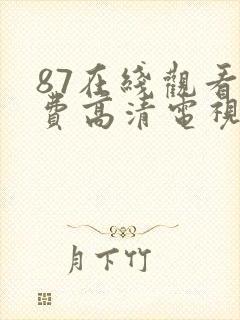 87在綫觀看
費高清電視
月下竹